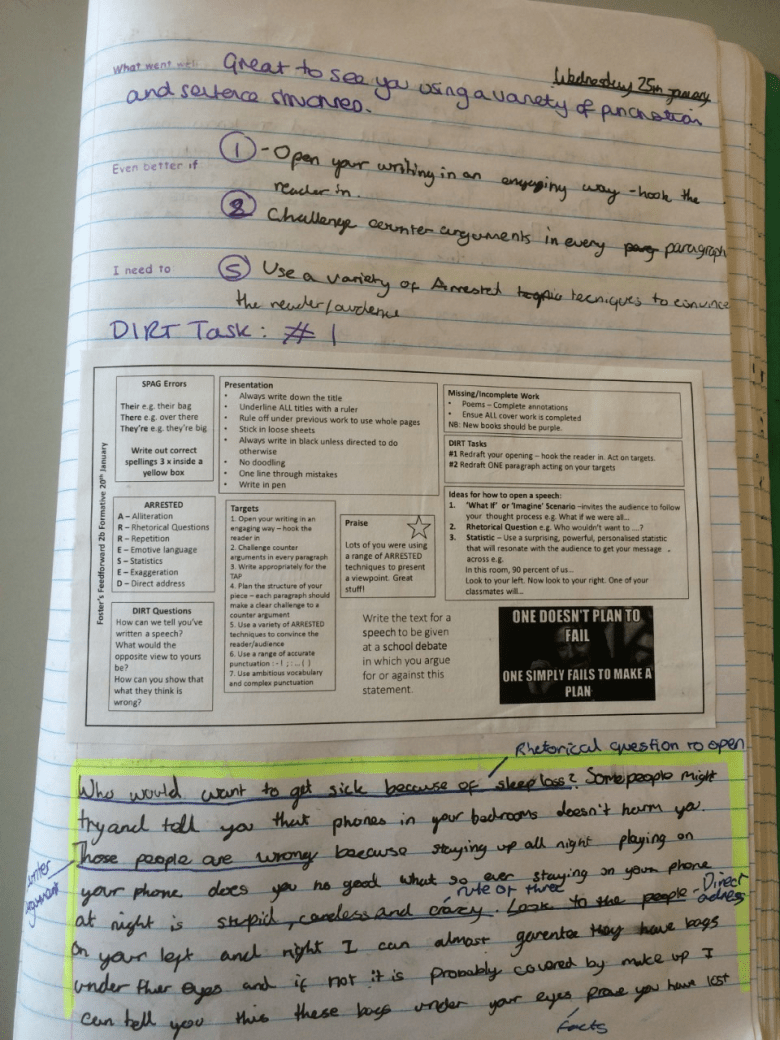 Wednesday 25th January
What went well Great to see you using a variety of punctuation
and sentence structures.
Even better if ① - Open your writing in an engaging way - hook the
reader in.
② Challenge counter arguments in every parag paragraph
I need to ⑤ Use a variety of Arrested tecniques to convince
the reader/audience
DIRT Task: #1
Foster's Feedforward 2b Formative 20th January
SPAG Errors
Their e.g. their bag
There e.g. over there
They're e.g. they're big
Write out correct
spellings 3 x inside a
yellow box
Presentation
• Always write down the title
• Underline ALL titles with a ruler
• Rule off under previous work to use whole pages
• Stick in loose sheets
• Always write in black unless directed to do
otherwise
• No doodling
• One line through mistakes
• Write in pen
Missing/Incomplete Work
• Poems – Complete annotations
• Ensue ALL cover work is completed
NB: New books should be purple.
DIRT Tasks
#1 Redraft your opening – hook the reader in. Act on targets.
#2 Redraft ONE paragraph acting on your targets
ARRESTED
A – Alliteration
R – Rhetorical Questions
R – Repetition
E – Emotive language
S – Statistics
E – Exaggeration
D – Direct address
Targets
1. Open your writing in an
engaging way – hook the
reader in
2. Challenge counter
arguments in every paragraph
3. Write appropriately for the
TAP
4. Plan the structure of your
piece – each paragraph should
make a clear challenge to a
counter argument
5. Use a variety of ARRESTED
techniques to convince the
reader/audience
6. Use a range of accurate
punctuation : - ! ; : … ( )
7. Use ambitious vocabulary
and complex punctuation
Praise
Lots of you were using
a range of ARRESTED
techniques to present
a viewpoint. Great
stuff!
Ideas for how to open a speech:
1. 'What if' or 'Imagine' Scenario –invites the audience to follow
your thought process e.g. What if we were all…
2. Rhetorical Question e.g. Who wouldn't want to ….?
3. Statistic – Use a surprising, powerful, personalised statistic
that will resonate with the audience to get your message
across e.g.
In this room, 90 percent of us…
Look to your left. Now look to your right. One of your
classmates will…
DIRT Questions
How can we tell you've
written a speech?
What would the
opposite view to yours
be?
How can you show that
what they think is
wrong?
Write the text for a
speech to be given
at a school debate
in which you argue
for or against this
statement.
ONE DOESN'T PLAN TO
FAIL
ONE SIMPLY FAILS TO MAKE A
PLAN
Rhetorical question to open
Who would want to get sick because of sleep loss? Some people might
try and tell you that phones in your bedrooms doesn't harm you.
Those people are wrong because staying up all night playing on
your phone does you no good what so ever staying on your phone
rule of three
at night is stupid, careless and crazy. Look to the people - Direct
adress
on your left and right I can almost garentee they have bags
under ther eyes and if not it is probably covered by make up I
can tell you this these bags under your eyes prove you have lost
facts